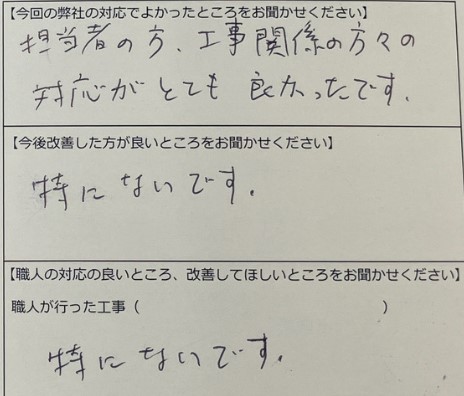 【今回の弊社の対応でよかったところをお聞かせください】
担当者の方、工事関係の方々の
対応がとても良かったです.
【今後改善した方が良いところをお聞かせください】
特にないです.
【職人の対応の良いところ、改善してほしいところをお聞かせください】
職人が行った工事（　　　　　　　　　　　　　　　　）
特にないです.